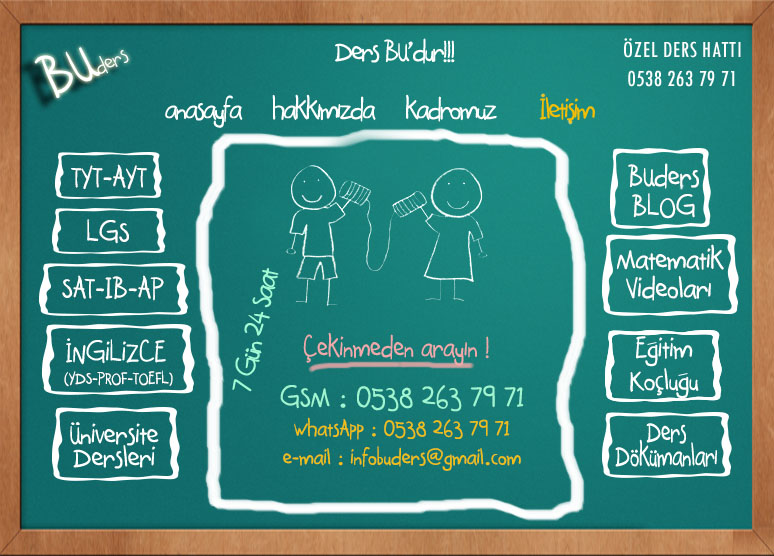 BUders
Ders BU'dur!!!
ÖZEL DERS HATTI
0538 263 79 71
anasayfa hakkımızda Kadromuz İletişim
TYT-AYT
LGS
SAT-IB-AP
İNGİLİZCE
(YDS-PROF-TOEFL)
Üniversite
Dersleri
7 Gün 24 Saat
Çekinmeden arayın !
GSM : 0538 263 79 71
whatsApp : 0538 263 79 71
e-mail : infobuders@gmail.com
Buders
BLOG
Matematik
Videoları
Eğitim
Koçluğu
Ders
DöKümanları